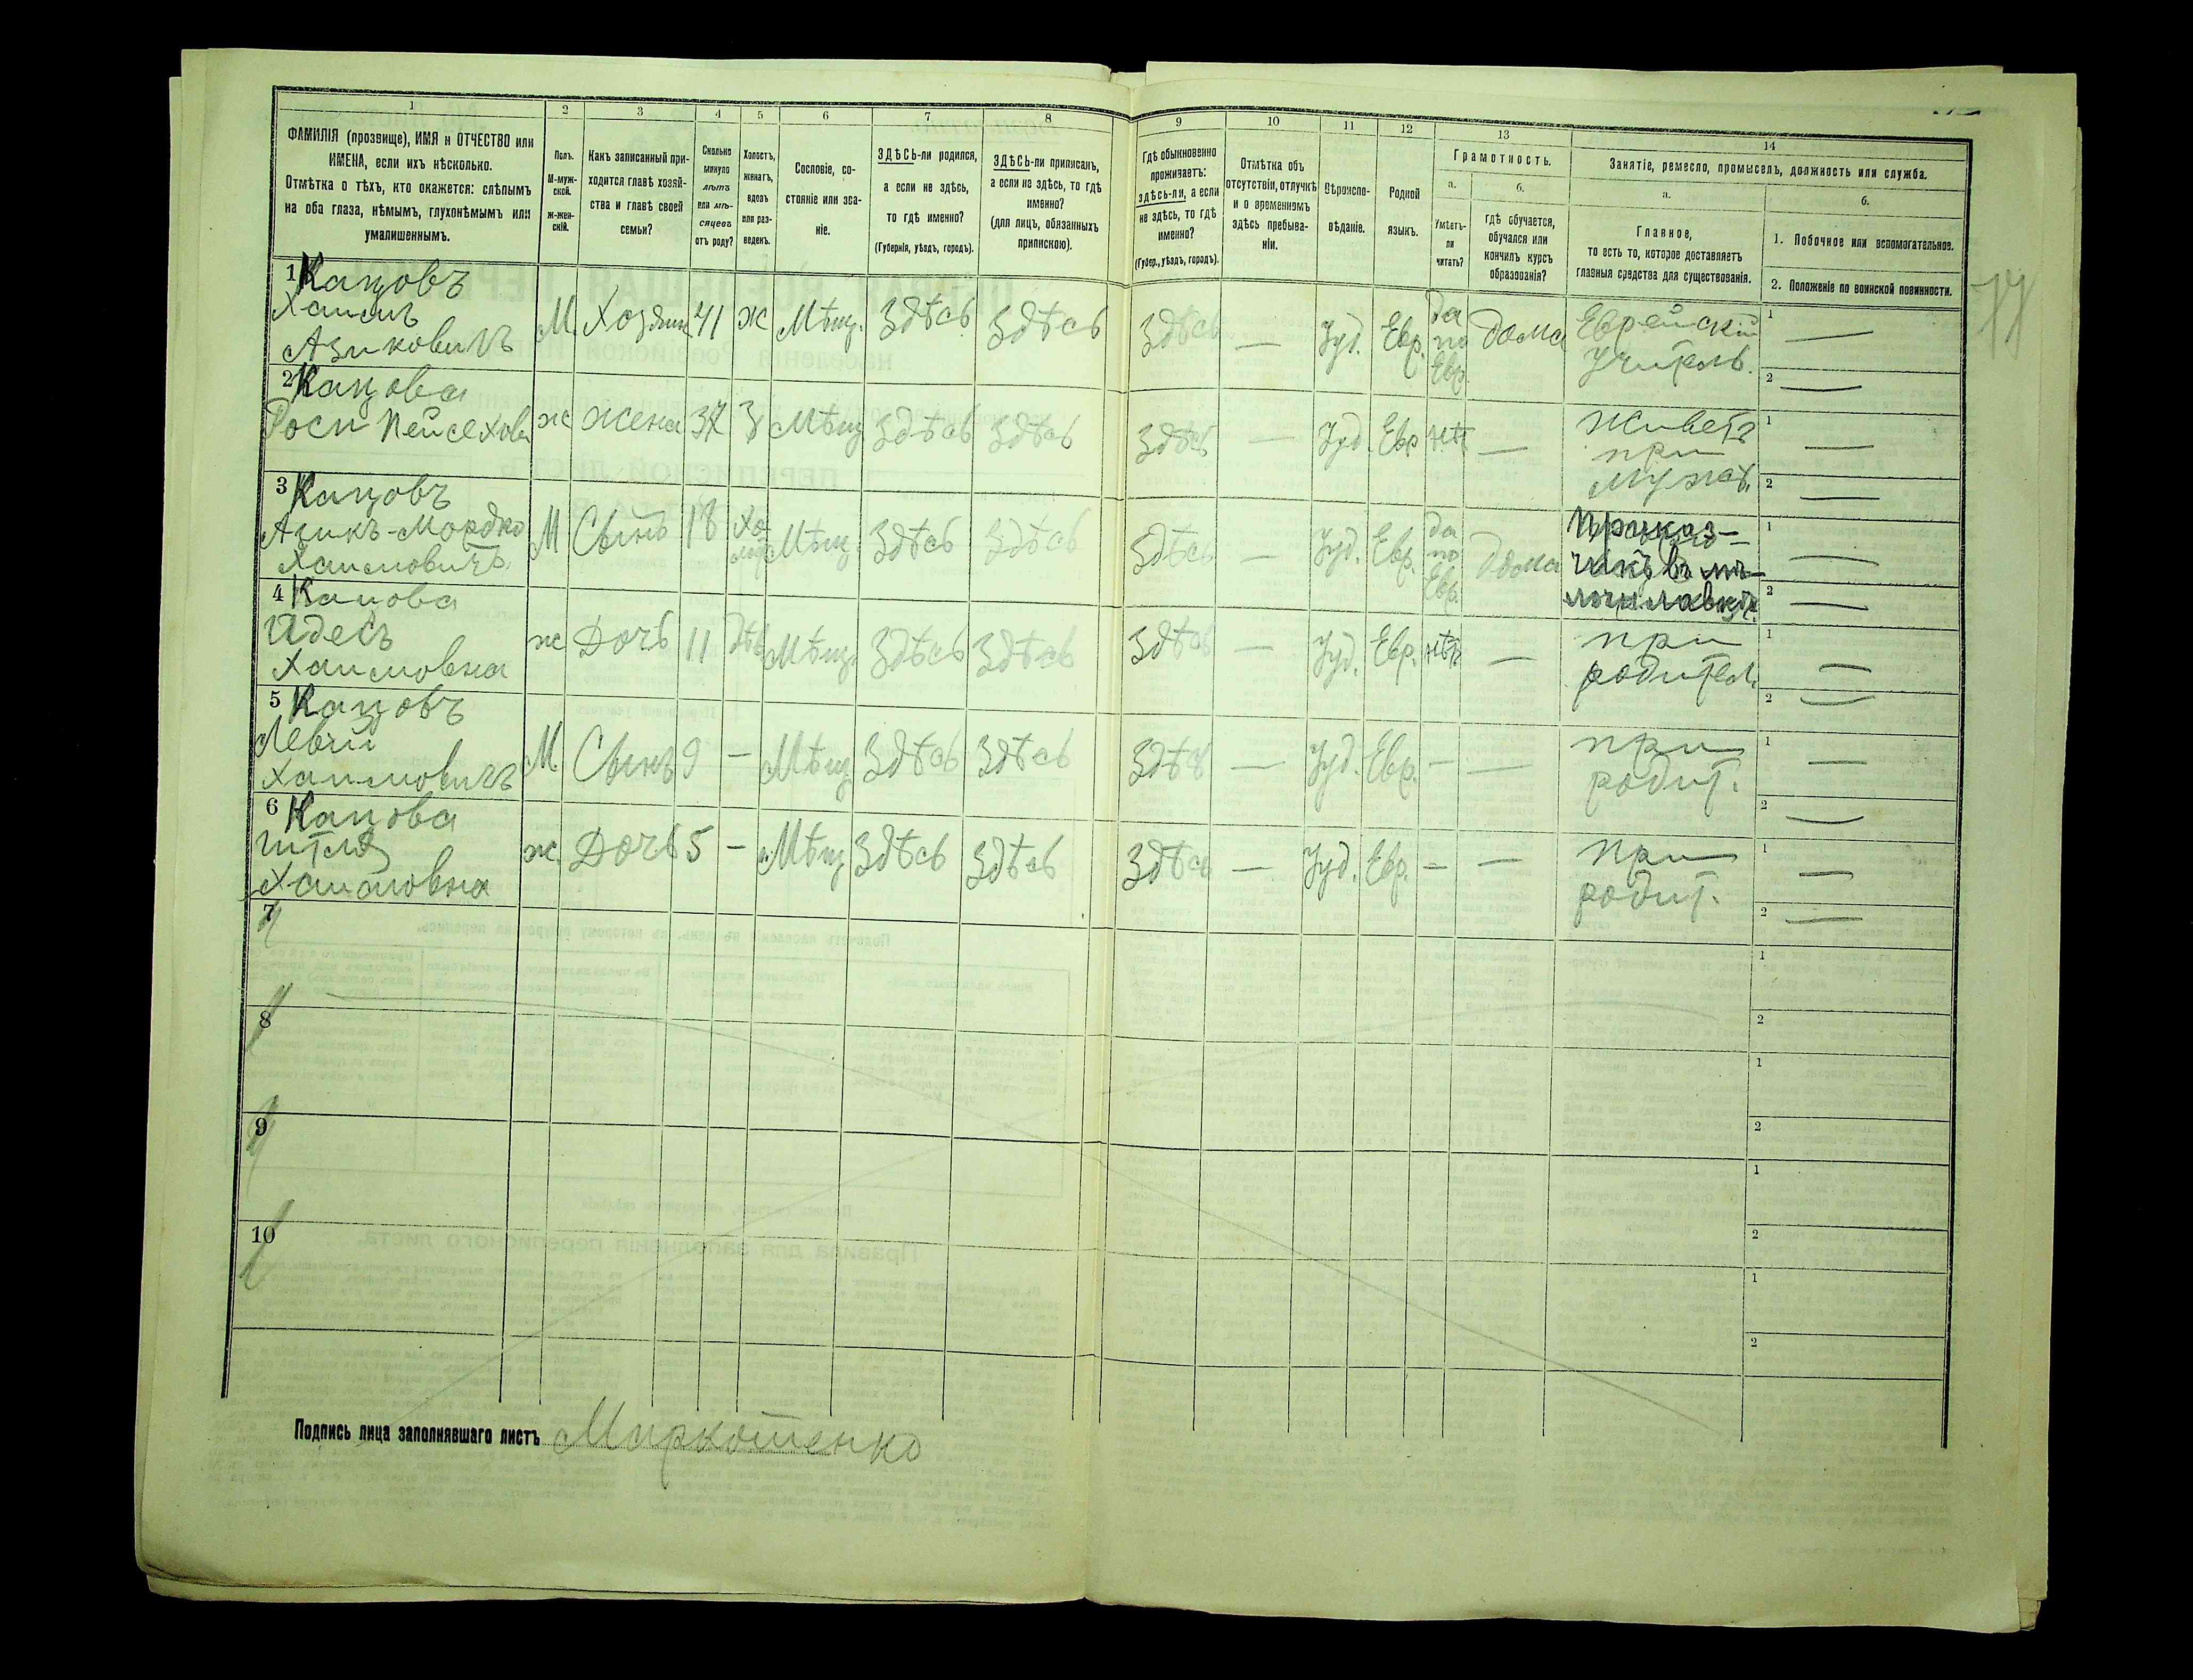 1 2 3 4 5 6 7 8 9 10 11 12 13 14
ФАМИЛІЯ (прозвище), ИМЯ и ОТЧЕСТВО или
ИМЕНА, если ихъ нѣсколько.
Отмѣтка о тѣхъ, кто окажется: слѣпымъ
на оба глаза, нѣмымъ, глухонѣмымъ или
умалишеннымъ.
Полъ.
М-муж-
ской.
ж-жен-
скій.
Какъ записанный при-
ходится главѣ хозяй-
ства и главѣ своей
семьи?
Сколько
минуло
лѣтъ
или мѣ-
сяцевъ
отъ роду?
Холостъ,
женатъ,
вдовъ
или раз-
веденъ.
Сословіе, со-
стояніе или зва-
ніе.
ЗДѢСЬ-ли родился,
а если не здѣсь,
то гдѣ именно?
(Губернія, уѣздъ, городъ).
ЗДѢСЬ-ли приписанъ,
а если не здѣсь, то гдѣ
именно?
(для лицъ, обязанныхъ
припискою).
Гдѣ обыкновенно
проживаетъ:
здѣсь-ли, а если
не здѣсь, то гдѣ
именно?
(Губер., уѣздъ, городъ).
Отмѣтка объ
отсутствіи, отлучкѣ
и о временномъ
здѣсь пребыва-
ніи.
Вѣроиспо-
вѣданіе.
Родной
языкъ.
Грамотность.
а.
Умѣетъ-
ли
читать?
б.
гдѣ обучается,
обучался или
кончилъ курсъ
образованія?
Занятіе, ремесло, промыселъ, должность или служба.
а.
Главное,
то есть то, которое доставляетъ
главныя средства для существованія.
б.
1. Побочное или вспомогательное.
2. Положеніе по воинской повинности.
1 Кацовъ
Хаимъ
Азиковичъ
М. Хозяинъ 41 ж Мѣщ. Здѣсь Здѣсь Здѣсь — Іуд. Евр. да по Евр. дома Еврейскій учитель. 1 — 2 —
2 Кацова
Роси Пейсехова
ж жена 37 З Мѣщ Здѣсь Здѣсь Здѣсь — Іуд. Евр нѣтъ — живетъ при мужѣ. 1 — 2 —
3 Кацовъ
Азикъ-Мордко
Хаимовичъ
М Сынъ 18 Хо-лост Мѣщ. Здѣсь Здѣсь Здѣсь — Іуд. Евр. да по Евр. Дома Приказ-чикъ въ 1 — 2 —
4 Кацова
Адесъ
Хаимовна
ж Дочь 11 дѣв Мѣщ. Здѣсь Здѣсь Здѣсь — Іуд. Евр. нѣтъ — при родител. 1 — 2 —
5 Кацовъ
Левій
Хаимовичъ
М. Сынъ 9 — Мѣщ Здѣсь Здѣсь Здѣсь — Іуд. Евр. — — при родит. 1 — 2 —
6 Кацова
Хаимовна
ж. Дочь 5 — Мѣщ Здѣсь Здѣсь Здѣсь — Іуд. Евр. — — при родит. 1 — 2 —
7
1
2
8
1
2
9
1
2
10
1
2
Подпись лица заполнявшаго листъ Миркотенко